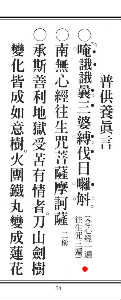 普供養真言
◯唵誐誐曩三婆縛伐日囉斛
心經一遍
往生咒三遍
◯南無心經往生咒菩薩摩訶薩 三稱
◯承斯善利地獄受苦有情者刀山劍樹
變化皆成如意樹火團鐵丸變成蓮花